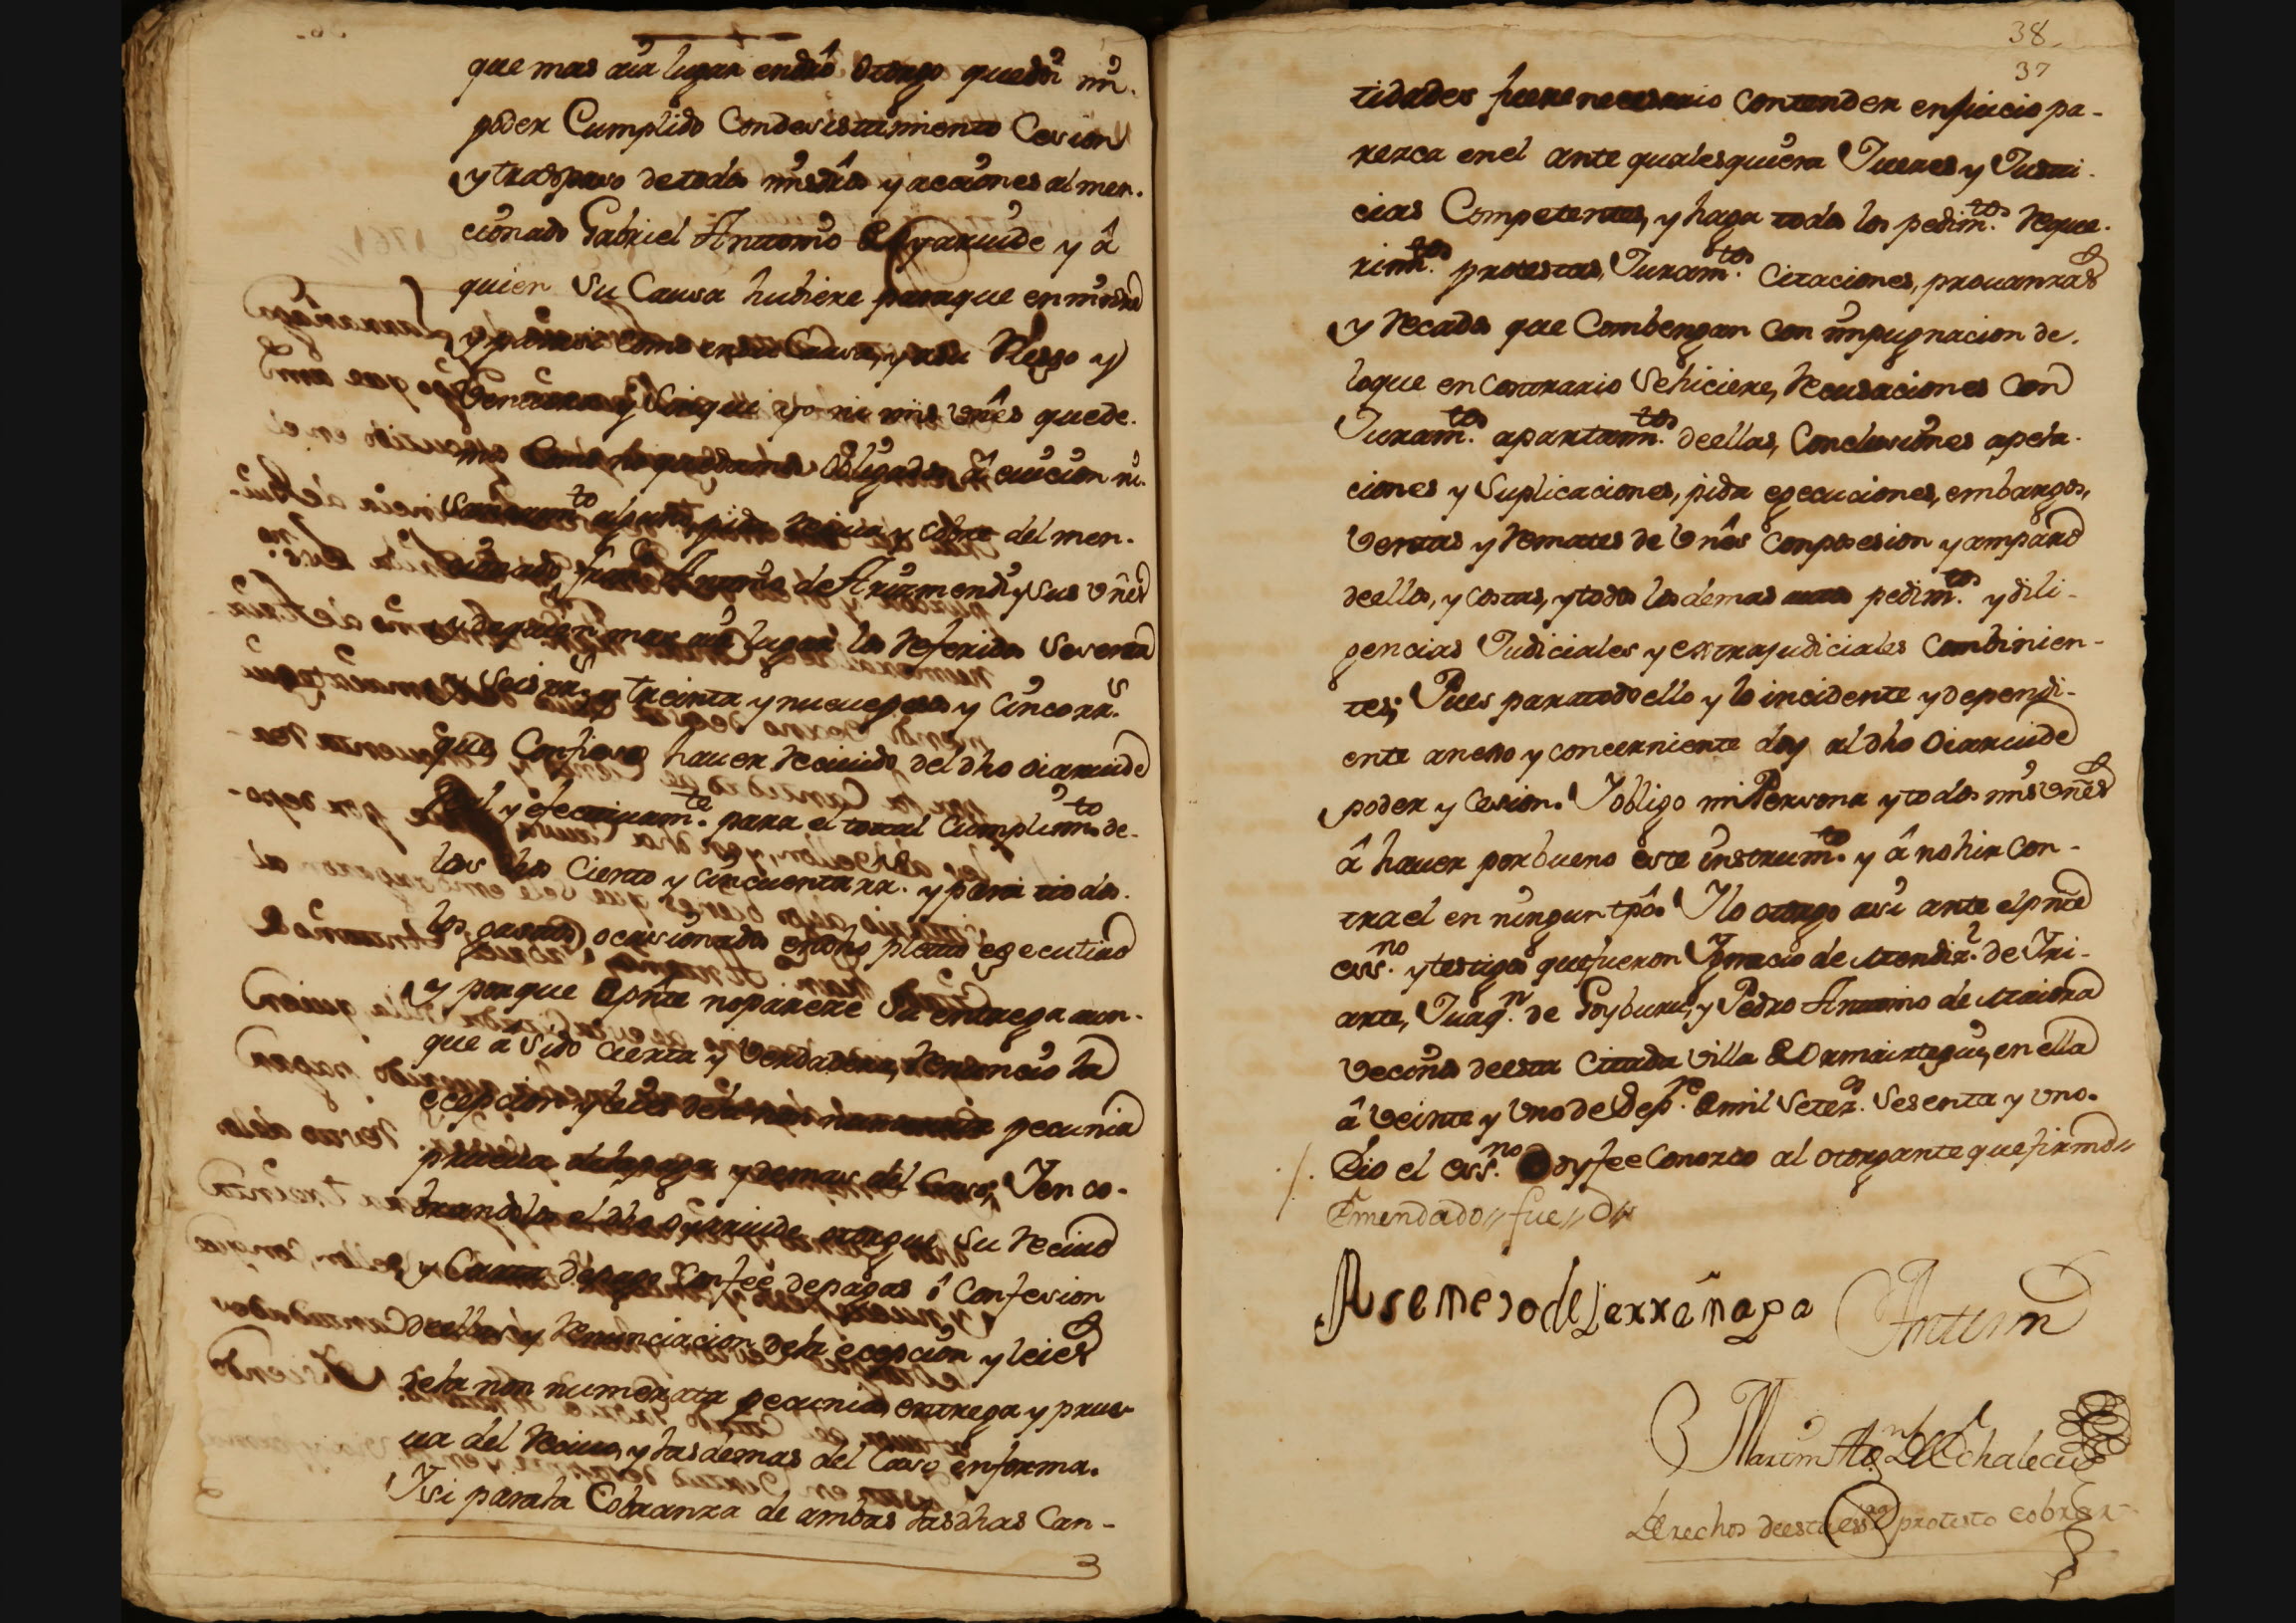 que mas aia lugar endrô Otorgo quedoi mi
poder Cumplido Condesistimiento Cesion
y traspaso detodos misdrôs y acciones al men-
cionado Gabriel Antonio Oyarvide y â
quien Su Causa hubiere paraque en minre
y para si como ensu Causa, y asu Riesgo y
Ventura y Sinque yo ni mis vnês quede-
mos Como no quedamos Obligados â euicion ni
Saneamto alguno, pida reciua y cobre del men-
cionado franco Antonio de Arizmendi y sus vnês
y dequien mas aia lugar los Referidos Sesenta
y Seis rrs y treinta y nueuepesos y Cinco rrs.
que Confieso hauer Reciuido del dho Oiarvide
Real y efectiuamte. para el total Cumplimto de-
los dhos Ciento y cincuenta rrs. y para todos
los gastos ocasionados endho pleito egecutiuo
y porque Depnte noparere Su entrega aun-
que a Sido cierta y Verdadera, Renuncio la
ecepcion y leies dela non numerata pecunia
prueua delapaga y demas del Caso, Y en co-
brandolos el dho Oyarvide otorgue Su Reciuo
y Carta depago Confee depagas ô Confesion
deellas y Renunciacion dela ecepcion y leies
dela non numerata pecunia, entrega y prue-
ua del Reciuo, y lasdemas del Caso enforma.
Y si parala Cobranza de ambas lasdhas Can-
38
37
tidades fuere necesario Contender enjuicio pa-
rezca enel ante qualesquiera Jueces y Justi-
cias Competentes, y haga todos los pedimtos. Reque-
rimtos. protestas, Juramtos. Citaciones, prouanzas
y Recados que Combengan Con impugnacion de-
loque en Contrario Sehiciere, Recusaciones Con
Juramtos. apartamtos. deellas, Conclusiones apela-
ciones y Suplicaciones, pida egecuciones, embargos,
Ventas y Remates de Vnês Conposesion y amparo
deellos, y costas, y todos los demas autos pedimtos. y dili-
gencias Judiciales y extrajudiciales Combinien-
tes; Pues paratodoello y lo incidente y dependi-
ente anexo y concerniente doy al dho Oiarvide
poder y Cesion. Y obligo mi Persona y todos mis vnes
â hauer porbueno este instrumto. y â nohir Con-
trael en ningun tpô. Y lo otorgo asi ante el pnte
essno. y testigos quefueron Ygnacio de Mendiz. de Yri-
arte, Juaqn. de Goyburu, y Pedro Antonio de Maiora
Vecinos deesta Citada villa de Ormaiztegui, en ella
â Veinte y Vno de Sepre. de mil Setezs. Sesenta y Vno.
Eio el essno. Doy fee Conozco al otorgante quefirmo//
Emendado // fue // D//
Asensio de Larrañaga Antemi
Martin Anto de Echalecu
Derechos deesta essra protesto cobrar